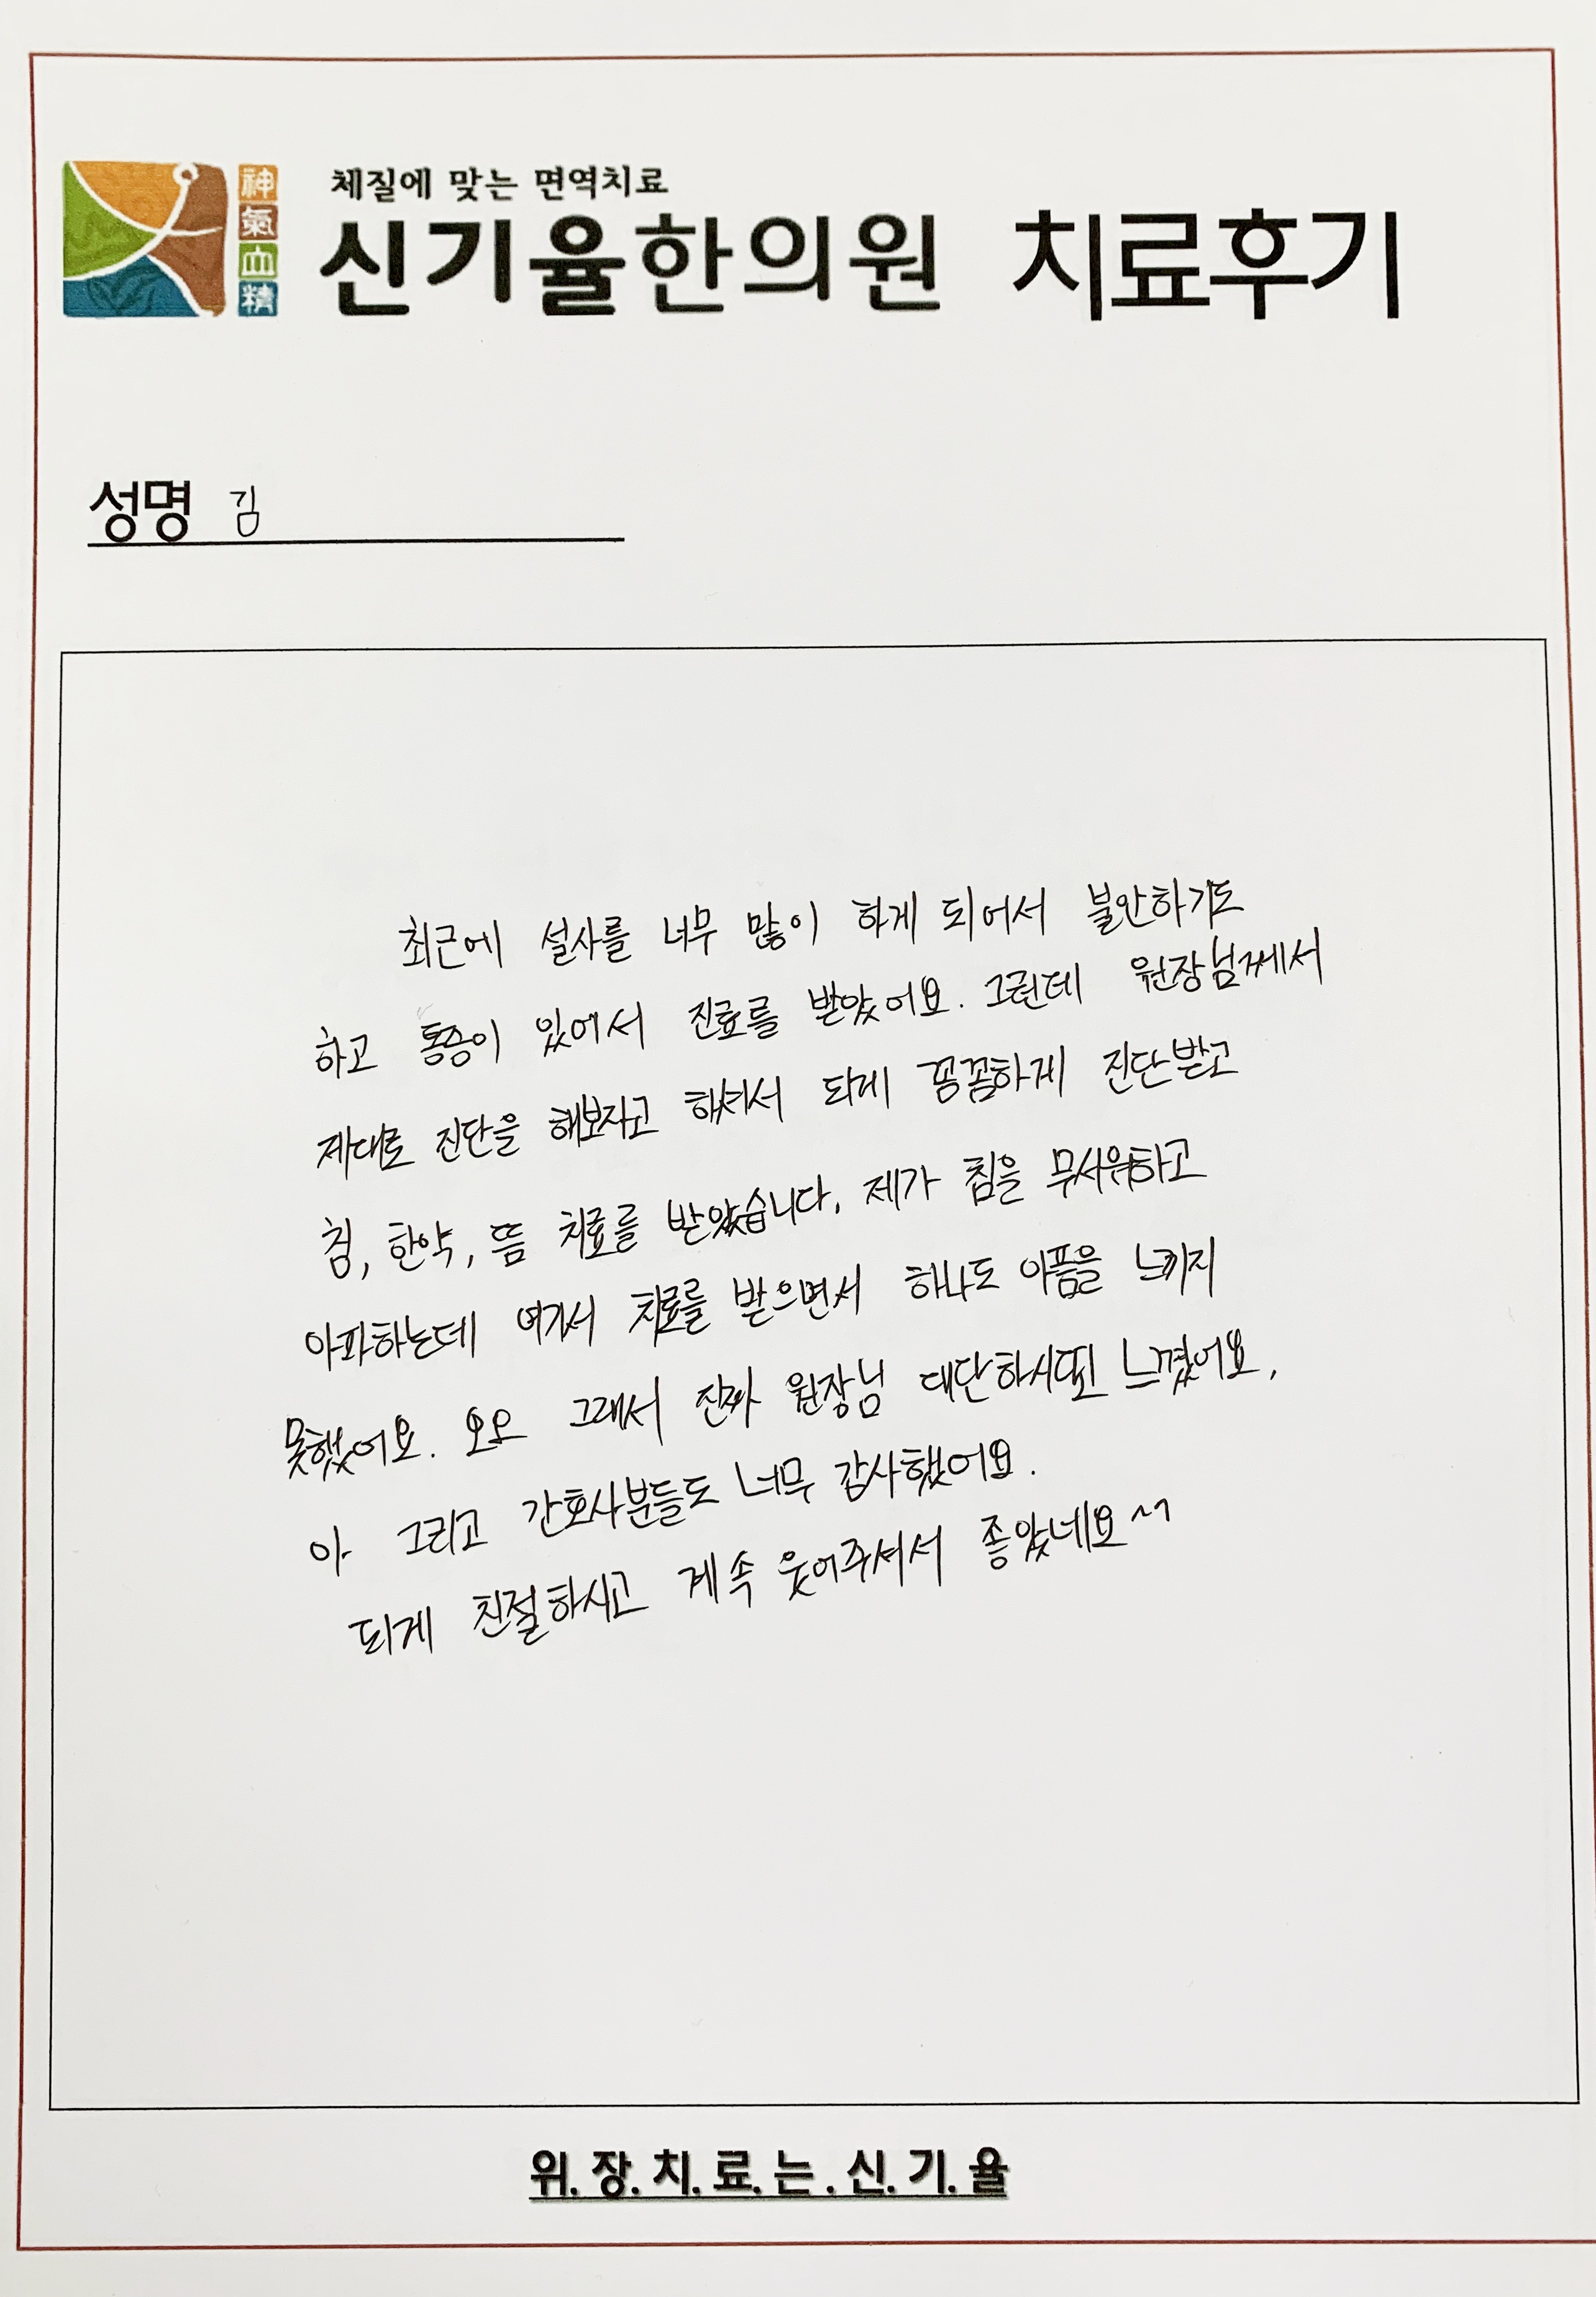 神
氣
血
精
체질에 맞는 면역치료
신기율한의원 치료후기
성명 김
최근에 설사를 너무 많이 하게 되어서 불안하기도
하고 통증이 있어서 진료를 받았어요. 그런데 원장님께서
제대로 진단을 해보자고 하셔서 되게 꼼꼼하게 진단받고
침, 한약, 뜸 치료를 받았습니다. 제가 침을 무서워하고
아파하는데 여기서 치료를 받으면서 하나도 아픔을 느끼지
못했어요. 오오 그래서 진짜 원장님 대단하시다고 느꼈어요.
아 그리고 간호사분들도 너무 감사했어요.
되게 친절하시고 계속 웃어주셔서 좋았네요~~
위.장.치.료.는.신.기.율